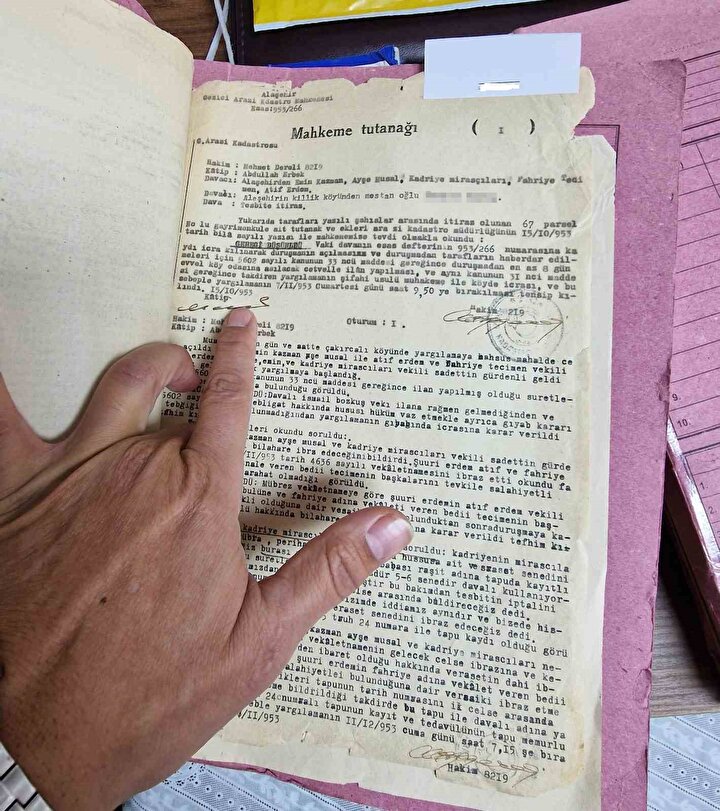 Alaşehir
Gezici Arazi Kadastro Mahkemesi
Esas:953/266
Mahkeme tutanağı ( I )
G.Arazi Kadastrosu
Hakim : Mehmet Dereli 8219
Kâtip : Abdullah Erbek
Davacı: Alaşehirden Emin Kazman, Ayşe Musal, Kadriye mirasçıları, Fahriye Teci
men, Atıf Erdem.
Davalı: Alaşehirin killik köyünden mestan oğlu
Dava : Tesbite itiraz.
Yukarıda tarafları yazılı şahıslar arasında itiraz olunan 67 parsel
No lu gayrimenkule ait tutanak ve ekleri ara si kadastro müdürlüğünün I5/IO/953
tarih bila sayılı yazısı ile mahkememize tevdi olmakla okundu :
GEREĞİ DÜŞÜNÜLDÜ Vaki davanın esas defterinin 953/266 numarasına ka
ydı icra kılınarak duruşmanın açılmasına ve duruşmadan tarafların haberdar edil-
meleri için 5602 sayılı kanunun 33 ncü maddesi gereğince duruşmadan en as 8 gün
evvel köy odasına asılacak cetvelle ilân yapılması, ve aynı kanunun 3I nci madde
si gereğince takdiren yargılamanın şifahi usulü mahkeme ile köyde icrası, ve bu
sebeple yargılamanın 7/II/953 Cumartesi günü saat 9,50 ye bırakılması tensip kı-
lındı. I5/IO/953
Kâtip
Hakim 82I9
Hakim : Me 82I9
Kâtip : Ab Erbek
Oturum : I .
gün ve saatte çakırcalı köyünde yargılamaya mahsus mahalde ce
açıldı kazman ayşe musal ile atıf erdem ve fahriye tecimen vekili
erdem ,emin,ve kadriye mirasçıları vekili sadettin gürdenli geldi
yargılamaya başlandı.
5602 kanunun 33 ncü maddesi gereğince ilan yapılmış olduğu suretle-
bulunduğu görüldü.
DÜ:Davalı ismail bozkuş vakı ilana rağmen gelmediğinden ve
tebligat hakkında hususi hüküm vaz etmekle ayrıca gıyab kararı
lunmadığından yargılamanın gıyabında icrasına karar verildi
leri okundu soruldu:
kazman ayşe musal ve kadriye mirasçıları vekili sadettin gürde
bilahare ibrs edeceğini bildirdi.Şuuri erdem atıf ve fahriye
/II/953 tarih 4636 sayılı vekâletnamesini ibraz etti okundu fa
 veren bedii tecimenin başkalarını tevkile salahiyetli
arahat olmadığı görüldü.
DÜ: Mübrez vekâletnameye göre şuuri erdemin atıf erdem vekili
bulüne ve fahriye adına vekâleti veren bedii tecimenin baş-
kli olduğuna dair
lü hakkında bilahare karar verildi tefhim kı-
kadriye mirasç soruldu: kadriyenin mirasçıla
übra , perih hususa ait veraset senedini
iz burası babası raşit adına tapuda kayıtlı
5-6 senedir davalı kullanıyor-
bu bakımdan tesbitin iptalini
else arasında bildireceğiz dedi.
azimde iddiamız aynıdır ve bizede his-
eraset senedini ibraz edeceğiz dedi
24 numara ile tapu kaydı olduğu görü
kazman ayşe musal ve kadriye mirasçıları ne-
vekâletnamenin gelecek celse ibrazına ve ke-
den ibaret olduğu hakkında verasetin dahi ib-
şuuri erdemin fahriye adına vekâlet veren bedii
alahiyetlei bulunduğuna dair versaiki ibraz etme
ikleri tapunun tarih numarasını ilk celse arasında
me bildrildiği takdirde bu tapu ile davalı adına ya
24 numaralı tapunun kayıt ve tedavülünün tapu memurlu
eble yargılamanın II/I2/953 cuma günü saat 7,I5 şe bıra
/II/953
Hakim 82I9
9.
10.